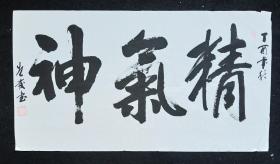 丁酉年秋
精氣神